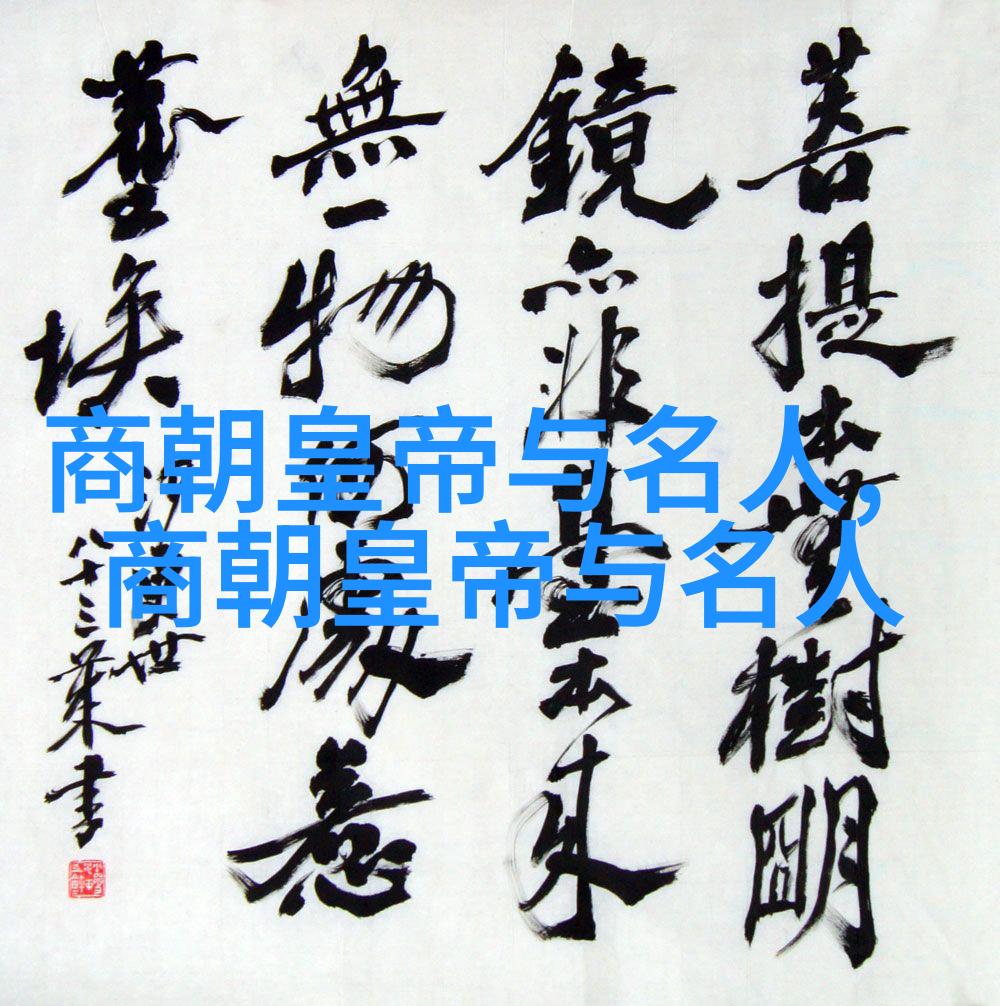 菩提本無樹明
鏡亦非臺本来
無一物何處惹
塵埃
八十三
書
商朝皇帝与名人,
商朝皇帝与名人